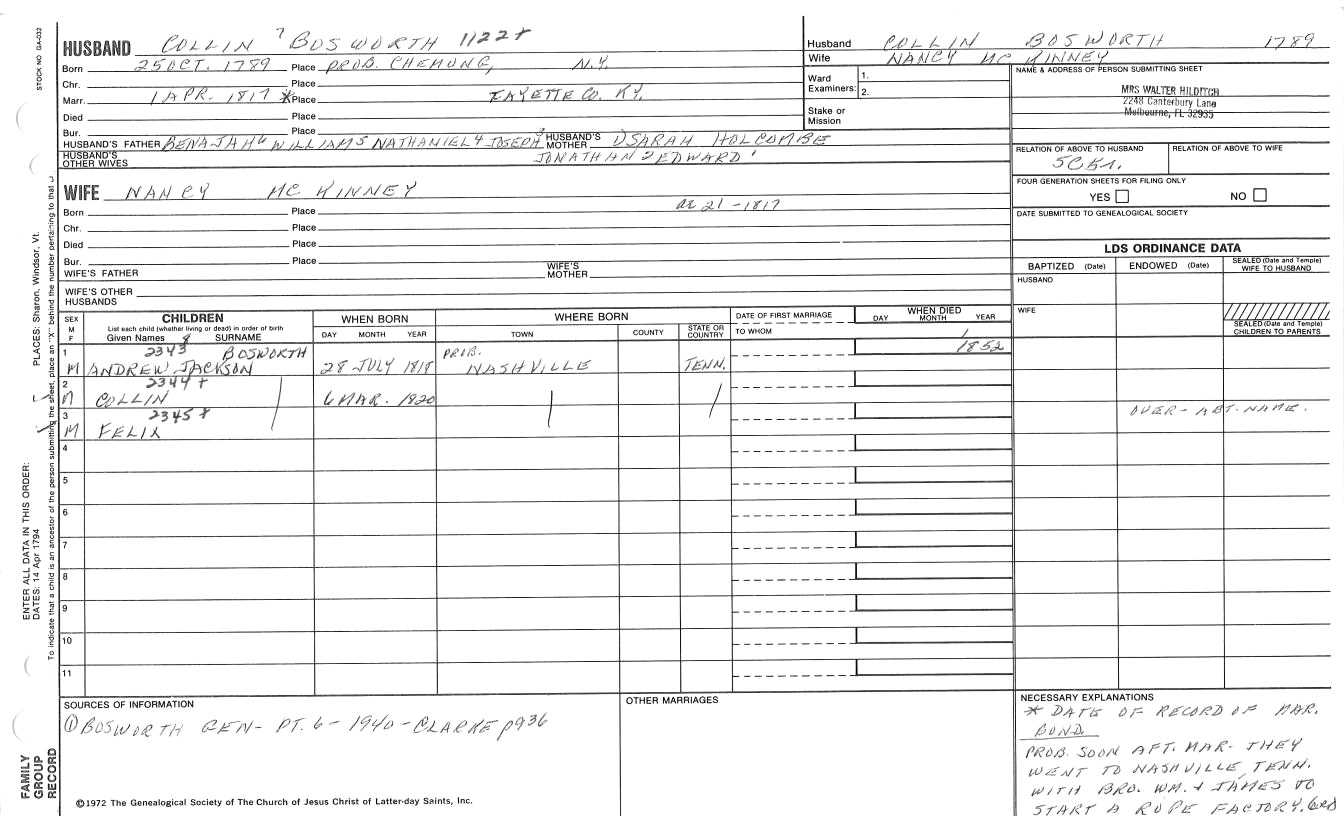 STOCK NO GA-032
HUSBAND COLLIN 7 BOSWORTH 1122+
Born 25 OCT. 1789 Place PROB. CHEMUNG, N.Y.
Chr. Place
Marr. 1 APR. 1817 * Place FAYETTE CO. KY.
Died Place
Bur. Place
HUSBAND'S FATHER BENAJAH 6 WILLIAM 5 NATHANIEL 4 JOSEPH 3 HUSBAND'S MOTHER SARAH HOLCOMBE
HUSBAND'S OTHER WIVES JONATHAN 2 EDWARD 1
Husband COLLIN BOSWORTH 1789
Wife NANCY MC KINNEY
Ward Examiners: 1.
2.
Stake or Mission
NAME & ADDRESS OF PERSON SUBMITTING SHEET
MRS WALTER HILDITCH
2248 Canterbury Lane
Melbourne, FL 32935
RELATION OF ABOVE TO HUSBAND RELATION OF ABOVE TO WIFE
5C R1.
FOUR GENERATION SHEETS FOR FILING ONLY
YES NO
DATE SUBMITTED TO GENEALOGICAL SOCIETY
WIFE NANCY MC KINNEY
Born Place AE 21 - 1817
Chr. Place
Died Place
Bur. Place
WIFE'S FATHER WIFE'S MOTHER
WIFE'S OTHER HUSBANDS
LDS ORDINANCE DATA
BAPTIZED (Date) ENDOWED (Date) SEALED (Date and Temple) WIFE TO HUSBAND
HUSBAND
WIFE
SEALED (Date and Temple) CHILDREN TO PARENTS
SEX M F CHILDREN
List each child (whether living or dead) in order of birth
Given Names 8 SURNAME
WHEN BORN
DAY MONTH YEAR
WHERE BORN
TOWN COUNTY STATE OR COUNTRY
DATE OF FIRST MARRIAGE
TO WHOM
WHEN DIED
DAY MONTH YEAR
1 2343 BOSWORTH PROB. 1852
M ANDREW JACKSON 28 JULY 1818 NASHVILLE TENN.
2 2344 +
M COLLIN 6 MAR. 1820
3 2345 + OVER - ABT. NAME.
M FELIX
4
5
6
7
8
9
10
11
SOURCES OF INFORMATION
① BOSWORTH GEN - PT. 6 - 1940 - CLARKE p936
©1972 The Genealogical Society of The Church of Jesus Christ of Latter-day Saints, Inc.
OTHER MARRIAGES
NECESSARY EXPLANATIONS
* DATE OF RECORD OF MAR.
BOND.
PROB. SOON AFT. MAR - THEY
WENT TO NASHVILLE, TENN.
WITH BRO. WM. & JAMES TO
START A ROPE FACTORY.
PLACES: Sharon, Windsor, Vt.
ENTER ALL DATA IN THIS ORDER:
DATES: 14 Apr 1794
To indicate that a child is an ancestor of the person submitting the sheet, place an "X" behind the number pertaining to that
FAMILY GROUP RECORD